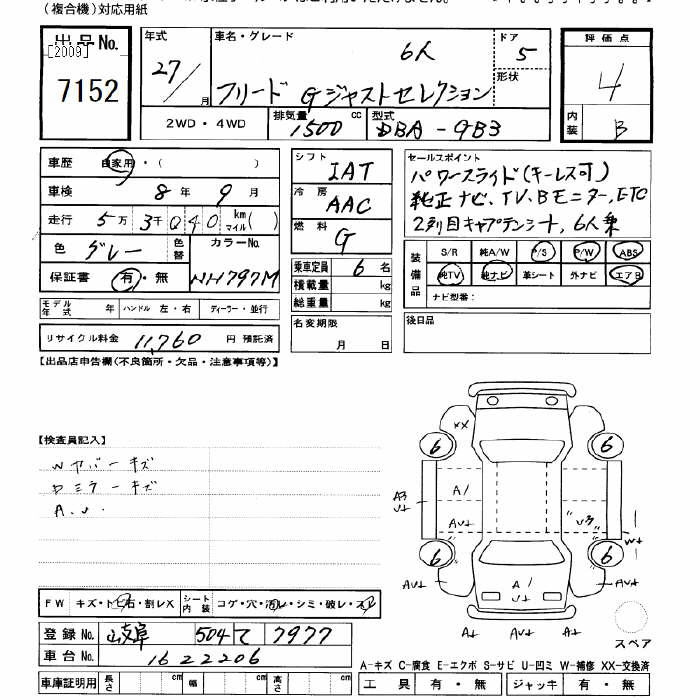 (複合機)対応用紙
出品No.
[2009]
7152
年式
27/
月
車名・グレード
6人
フリード Gジャストセレクション
ドア
5
形状
評価点
4
内装
B
2WD・4WD
排気量
1500 cc
型式
DBA-GB3
車歴 自家用・( )
車検 8年 9月
走行 5万 3千 0 4 0 km マイル( )
色 グレー 色替 カラーNo.
保証書 有・無 NH797M
モデル年式 年 ハンドル 左・右 ディーラー・並行
リサイクル料金 11,760 円 預託済
シフト IAT
冷房 AAC
燃料 G
乗車定員 6 名
積載量 kg
総重量 kg
名変期限
月 日
セールスポイント
パワースライド(キーレス可)
純正ナビ、TV、Bモニター、ETC
2列目キャプテンシート、6人乗
装備品
S/R 純A/W P/S P/W ABS
純TV 純ナビ 革シート 外ナビ エアB
ナビ型番:
後日品
【出品店申告欄(不良箇所・欠品・注意事項等)】
【検査員記入】
Wカバーキズ
Dミラーキズ
A.U.
XX
6
6
A3
U+
A/
U3
AU+
W+
6
6
AU+
A/
U+
AU+
A+
AU+
A+
スペア
FW キズ・トビ石・割レX シート内装 コゲ・穴・汚レ・シミ・破レ・スレ
登録No. 岐阜 504 て 7977
車台No. 1622206
車庫証明用 長さ cm 幅 cm 高さ cm
A-キズ C-腐食 E-エクボ S-サビ U-凹ミ W-補修 XX-交換済
工具 有・無 ジャッキ 有・無